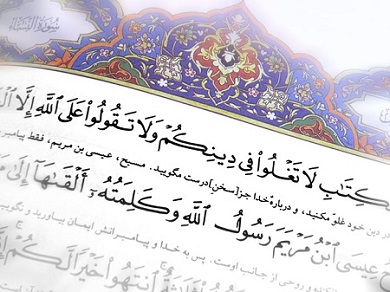 سُورَةُ النِّسَاءِ
كِتَٰبِ لَا تَغْلُوا۟ فِى دِينِكُمْ وَلَا تَقُولُوا۟ عَلَى ٱللَّهِ إِلَّا
در دین خود غلوّ مکنید، و دربارهٔ خدا جز [سخن] درست مگویید. مسیح، عیسی بن مریم، فقط پیامبر
عِيسَى ٱبْنُ مَرْيَمَ رَسُولُ ٱللَّهِ وَكَلِمَتُهُۥٓ أَلْقَىٰهَآ إِلَىٰ
و روحی از جانب اوست. پس به خدا و پیامبرانش ایمان بیاورید و نگویید
ثَلَٰثَةٌ ٱنتَهُوا۟ خَيْرًا لَّكُمْ